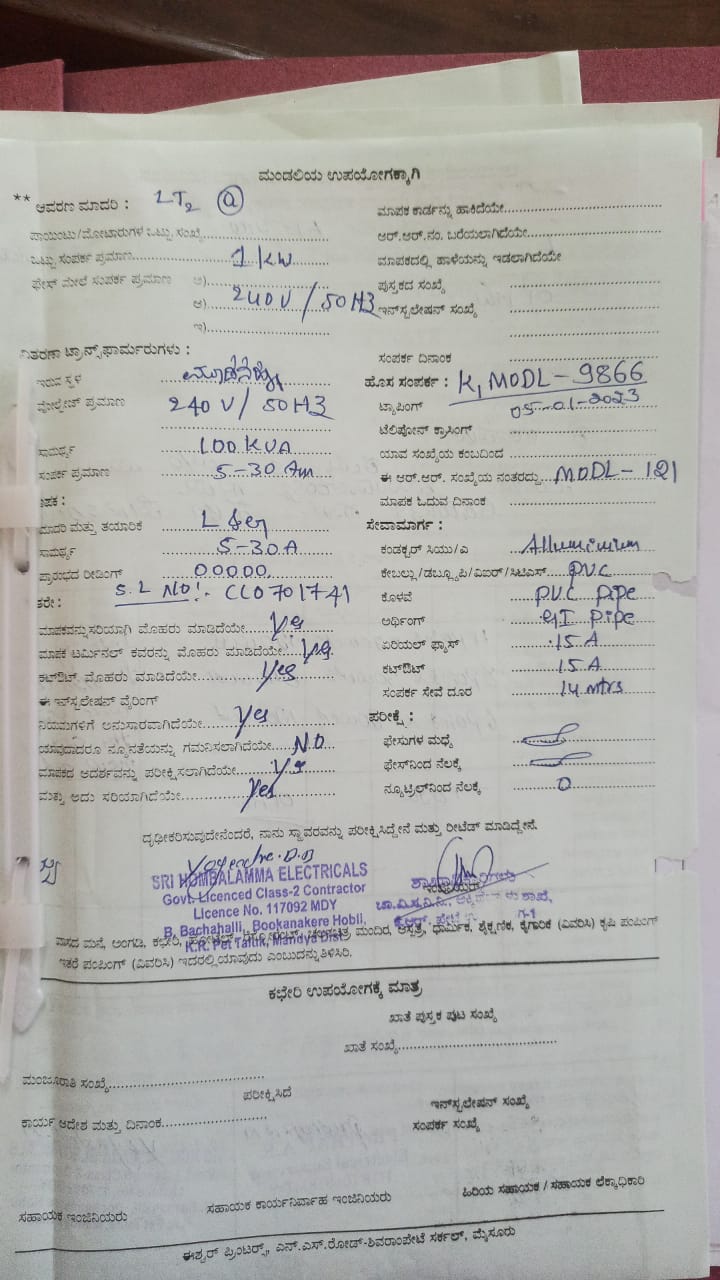 ಮಂಡಲಿಯ ಉಪಯೋಗಕ್ಕಾಗಿ
** ಆವರಣ ಮಾದರಿ : LT2 (a)
ಪಾಯಿಂಟು/ಮೋಟಾರುಗಳ ಒಟ್ಟು ಸಂಖ್ಯೆ
ಒಟ್ಟು ಸಂಪರ್ಕ ಪ್ರಮಾಣ 1 KW
ಫೇಸ್ ಮೇಲೆ ಸಂಪರ್ಕ ಪ್ರಮಾಣ ಅ)
ಆ) 240V / 50HZ
ಇ)
ವಿತರಣಾ ಟ್ರಾನ್ಸ್‌ಫಾರ್ಮರುಗಳು :
ಇರುವ ಸ್ಥಳ
ವೋಲ್ಟೇಜ್ ಪ್ರಮಾಣ 240 V / 50HZ
ಸಾಮರ್ಥ್ಯ 100 KVA
ಸಂಪರ್ಕ ಪ್ರಮಾಣ 5-30 Am
ಮಾಪಕ :
ಮಾದರಿ ಮತ್ತು ತಯಾರಿಕೆ
ಸಾಮರ್ಥ್ಯ 5-30A
ಪ್ರಾರಂಭದ ರೀಡಿಂಗ್ 00000
ಇತರೇ : S.L NO:- CL0701741
ಮಾಪಕವನ್ನು ಸರಿಯಾಗಿ ಮೊಹರು ಮಾಡಿದೆಯೇ Yes
ಮಾಪಕ ಟರ್ಮಿನಲ್ ಕವರನ್ನು ಮೊಹರು ಮಾಡಿದೆಯೇ Yes
ಕಟ್‌ಔಟ್ ಮೊಹರು ಮಾಡಿದೆಯೇ Yes
ಈ ಇನ್‌ಸ್ಟಲೇಷನ್ ವೈರಿಂಗ್
ನಿಯಮಗಳಿಗೆ ಅನುಸಾರವಾಗಿದೆಯೇ Yes
ಯಾವುದಾದರೂ ನ್ಯೂನತೆಯನ್ನು ಗಮನಿಸಲಾಗಿದೆಯೇ NO
ಮಾಪಕದ ಆದರ್ಶವನ್ನು ಪರೀಕ್ಷಿಸಲಾಗಿದೆಯೇ Yes
ಮತ್ತು ಅದು ಸರಿಯಾಗಿದೆಯೇ Yes
ಮಾಪಕ ಕಾರ್ಡನ್ನು ಹಾಕಿದೆಯೇ
ಆರ್.ಆರ್.ನಂ. ಬರೆಯಲಾಗಿದೆಯೇ
ಮಾಪಕದಲ್ಲಿ ಹಾಳೆಯನ್ನು ಇಡಲಾಗಿದೆಯೇ
ಪುಸ್ತಕದ ಸಂಖ್ಯೆ
ಇನ್‌ಸ್ಟಲೇಷನ್ ಸಂಖ್ಯೆ
ಸಂಪರ್ಕ ದಿನಾಂಕ
ಹೊಸ ಸಂಪರ್ಕ : K, MODL - 9866
ಟ್ಯಾಪಿಂಗ್ 05-01-2023
ಟೆಲಿಫೋನ್ ಕ್ರಾಸಿಂಗ್
ಯಾವ ಸಂಖ್ಯೆಯ ಕಂಬದಿಂದ
ಈ ಆರ್.ಆರ್. ಸಂಖ್ಯೆಯ ನಂತರದ್ದು MODL - 121
ಮಾಪಕ ಓದುವ ದಿನಾಂಕ
ಸೇವಾಮಾರ್ಗ :
ಕಂಡಕ್ಟರ್ ಸಿಯು/ಎ Alluminium
ಕೇಬಲ್ಲು/ಡಬ್ಲ್ಯೂಪಿ/ವಿಐಆರ್/ಸಿಟಿಎಸ್ PVC
ಕೊಳವೆ PVC pipe
ಅರ್ಥಿಂಗ್ GI Pipe
ಏರಿಯಲ್ ಫ್ಯೂಸ್ 15 A
ಕಟ್‌ಔಟ್ 15 A
ಸಂಪರ್ಕ ಸೇವೆ ದೂರ 14 mtrs
ಪರೀಕ್ಷೆ :
ಫೇಸುಗಳ ಮಧ್ಯೆ
ಫೇಸ್‌ನಿಂದ ನೆಲಕ್ಕೆ
ನ್ಯೂಟ್ರಲ್‌ನಿಂದ ನೆಲಕ್ಕೆ 0
ದೃಢೀಕರಿಸುವುದೇನೆಂದರೆ, ನಾನು ಸ್ಥಾವರವನ್ನು ಪರೀಕ್ಷಿಸಿದ್ದೇನೆ ಮತ್ತು ರೀಟೆಡ್ ಮಾಡಿದ್ದೇನೆ.
SRI HOMBALAMMA ELECTRICALS
Govt. Licenced Class-2 Contractor
Licence No. 117092 MDY
B. Bachahalli, Bookanakere Hobli,
K.R. Pet Taluk, Mandya Dist
ವಾಸದ ಮನೆ, ಅಂಗಡಿ, ಕಛೇರಿ, ಮಂದಿರ, ಆಸ್ಪತ್ರೆ, ಧಾರ್ಮಿಕ, ಶೈಕ್ಷಣಿಕ, ಕೈಗಾರಿಕೆ (ವಿವರಿಸಿ) ಕೃಷಿ ಪಂಪಿಂಗ್
ಇತರೆ ಪಂಪಿಂಗ್ (ವಿವರಿಸಿ) ಇದರಲ್ಲಿ ಯಾವುದು ಎಂಬುದನ್ನು ತಿಳಿಸಿರಿ.
ಕಛೇರಿ ಉಪಯೋಗಕ್ಕೆ ಮಾತ್ರ
ಖಾತೆ ಪುಸ್ತಕ ಪುಟ ಸಂಖ್ಯೆ
ಖಾತೆ ಸಂಖ್ಯೆ
ಮಂಜೂರಾತಿ ಸಂಖ್ಯೆ
ಪರೀಕ್ಷಿಸಿದೆ
ಇನ್‌ಸ್ಟಲೇಷನ್ ಸಂಖ್ಯೆ
ಕಾರ್ಯ ಆದೇಶ ಮತ್ತು ದಿನಾಂಕ
ಸಂಪರ್ಕ ಸಂಖ್ಯೆ
ಸಹಾಯಕ ಇಂಜಿನಿಯರು
ಸಹಾಯಕ ಕಾರ್ಯನಿರ್ವಾಹ ಇಂಜಿನಿಯರು
ಹಿರಿಯ ಸಹಾಯಕ / ಸಹಾಯಕ ಲೆಕ್ಕಾಧಿಕಾರಿ
ಈಶ್ವರ್ ಪ್ರಿಂಟರ್ಸ್, ಎನ್.ಎಸ್.ರೋಡ್-ಶಿವರಾಂಪೇಟೆ ಸರ್ಕಲ್, ಮೈಸೂರು